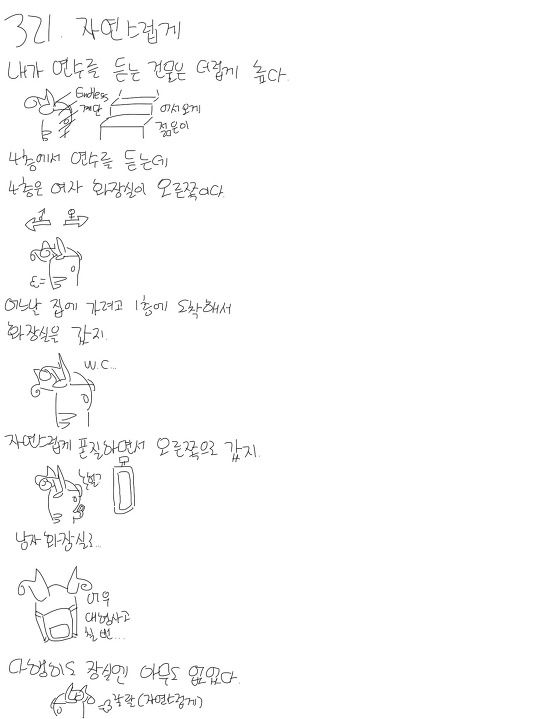 321. 자연스럽게
내가 연수를 듣는 건물은 더럽게 높다.
Endless
계단
어서오게
젊은이
4층에서 연수를 듣는데
4층은 여자 화장실이 오른쪽이다.
어느날 집에 가려고 1층에 도착해서
화장실을 갔지.
W.C...
자연스럽게 폰질하면서 오른쪽으로 갔지.
남자 화장실로...
어우
대형사고
칠 뻔...
다행히도 장실엔 아무도 없었다.
(자연스럽게)